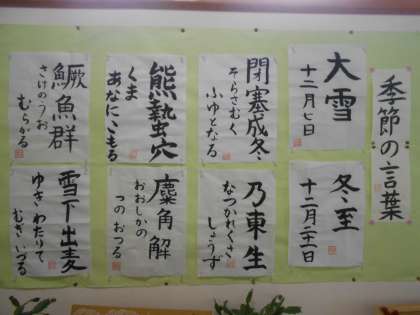 季節の言葉
大雪
十二月七日
閉塞成冬
そらさむく
ふゆとなる
熊蟄穴
くま
あなにこもる
鱖魚群
さけのうお
むらがる
冬至
十二月二十一日
乃東生
なつかれくさ
しょうず
麋角解
おおしかの
つのおつる
雪下出麦
ゆきわたりて
むぎいづる